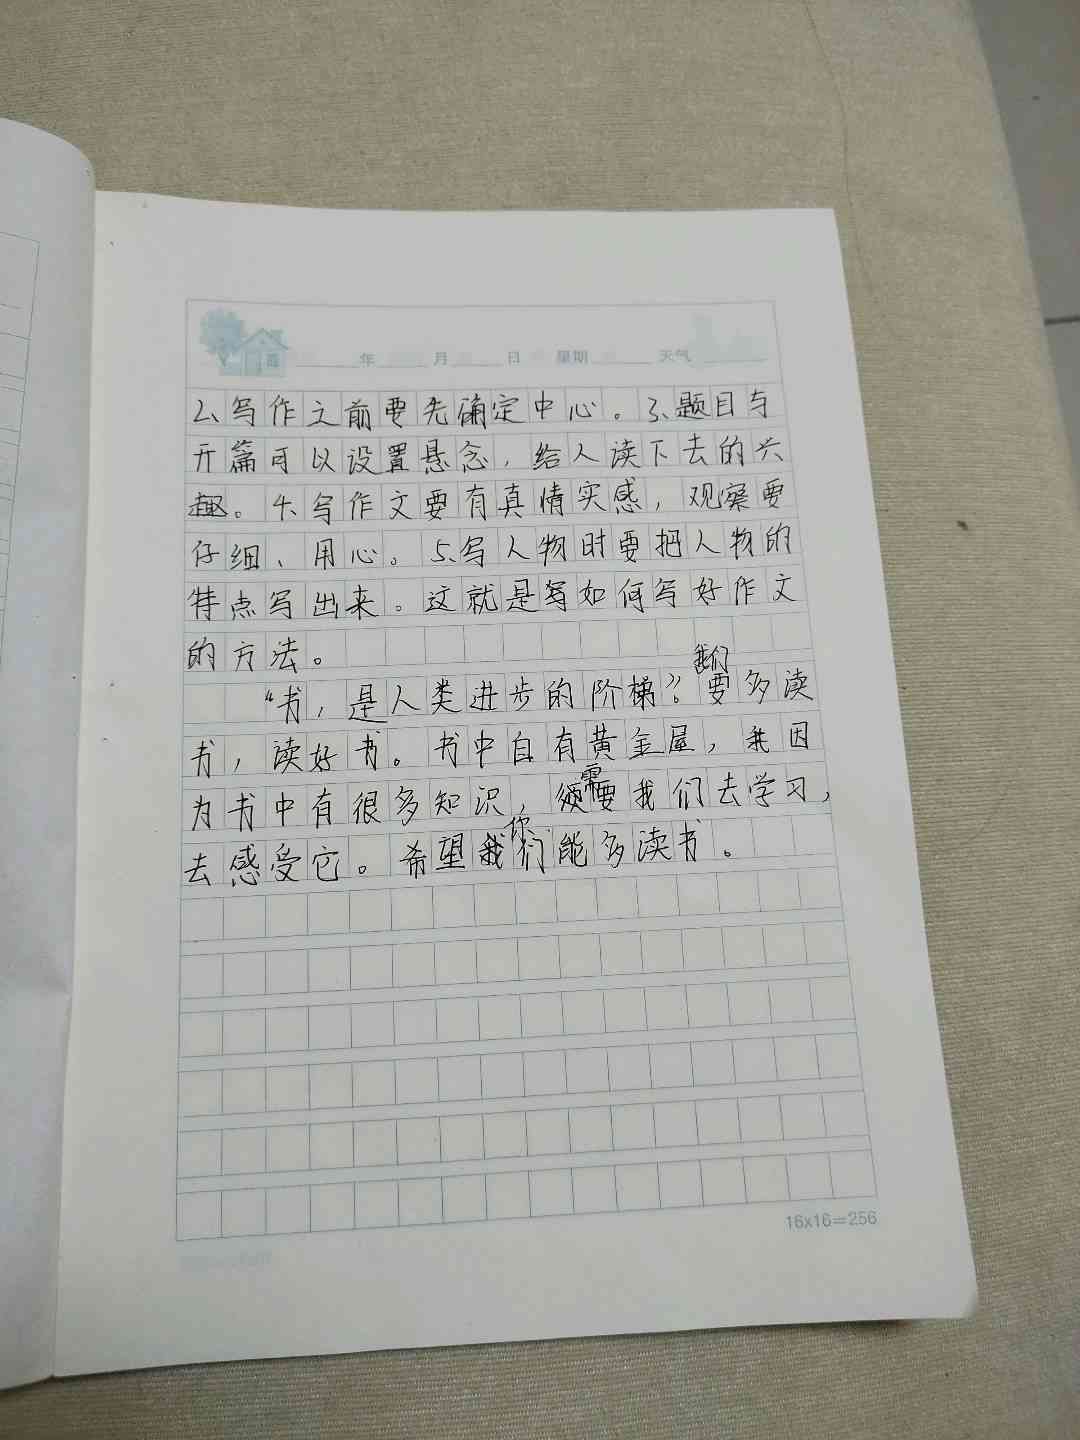 年 月 日 星期 天气
2、写作之前要先确定中心。3、题目与
开篇可以设置悬念，给人读下去的兴
趣。4、写作文要有真情实感，观察要
仔细、用心。5、写人物时要把人物的
特点写出来。这就是写如何写好作文
的方法。
“书，是人类进步的阶梯”。我们要多读
书，读好书。书中自有黄金屋，我因
为书中有很多知识，需要我们去学习，
去感受它。希望你们能多读书。
16x16=256